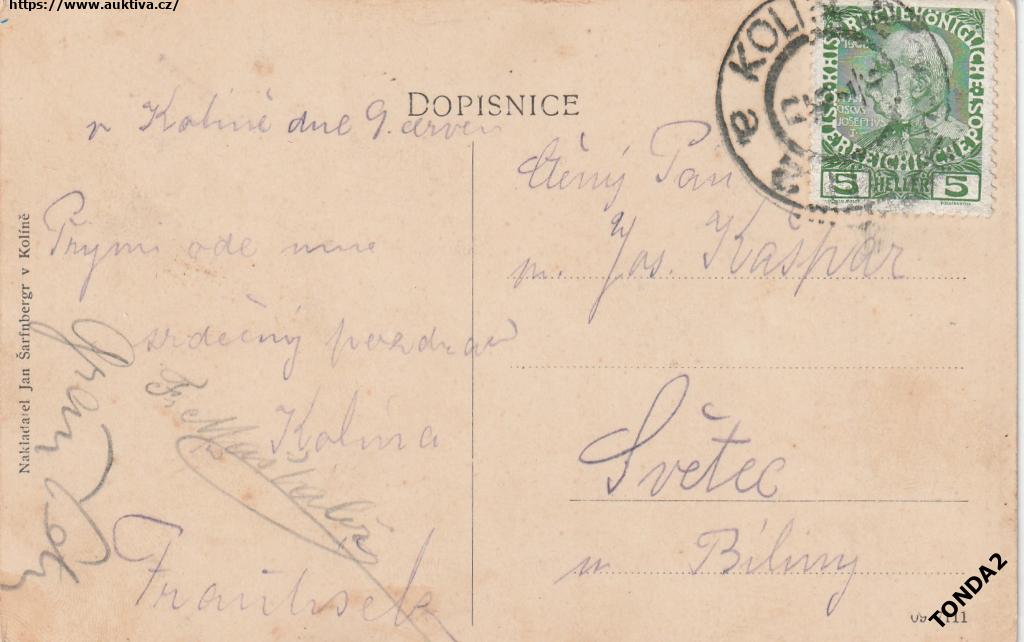 https://www.auktiva.cz/
DOPISNICE
v Kolíně dne 9. červen
Přijmi ode mne
srdečný pozdrav
Kolína
František
Fr. Maškalíř
Ctěný Pan
p. Jos. Kašpar
Světec
u Bíliny
Nakladatel Jan Šarfnbergr v Kolíně
KOLÍN
1908
KAISERLICHE KÖNIGLICHE
ÖSTERREICHISCHE POST
5 HELLER 5
TONDA2